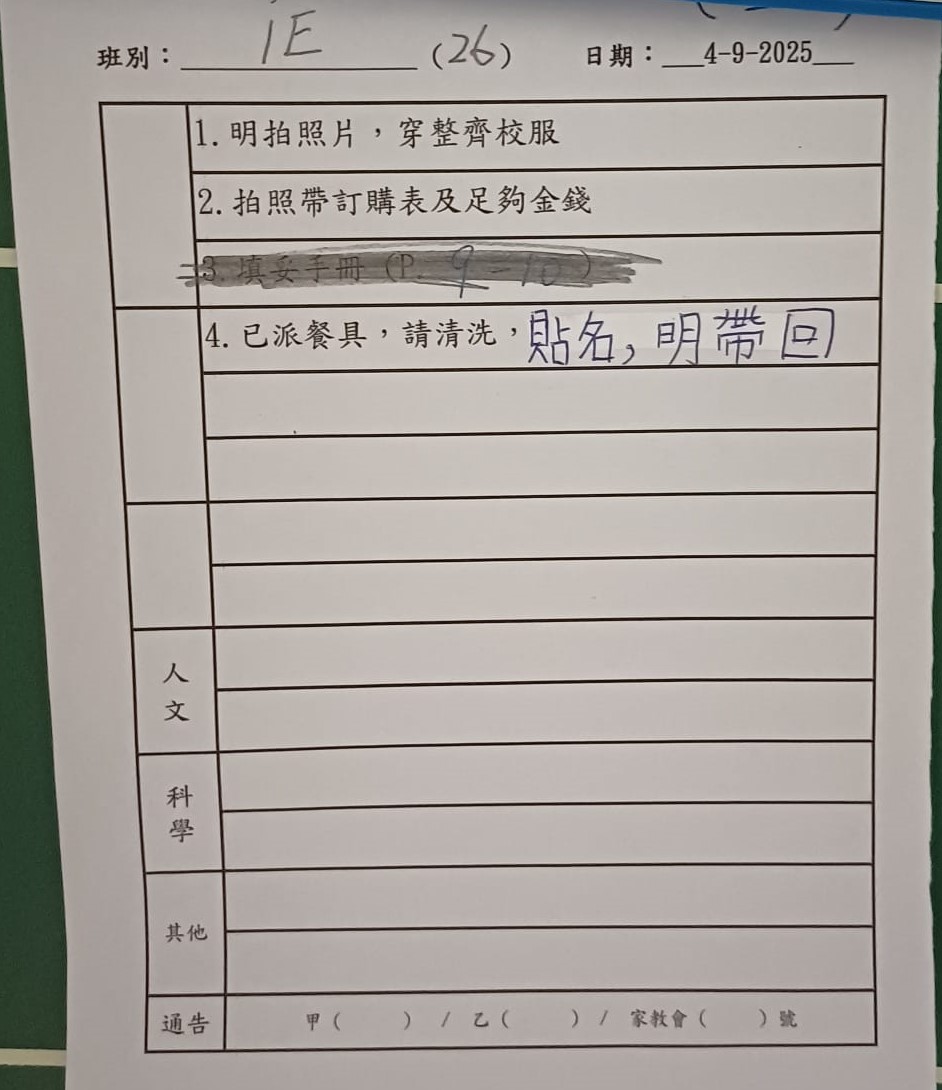 班別：1E (26) 日期：4-9-2025
1. 明拍照片，穿整齊校服
2. 拍照帶訂購表及足夠金錢
3. 填妥手冊 (P. 9-10)
4. 已派餐具，請清洗，貼名，明帶回
人文
科學
其他
通告 甲（ ）/ 乙（ ）/ 家教會（ ）號